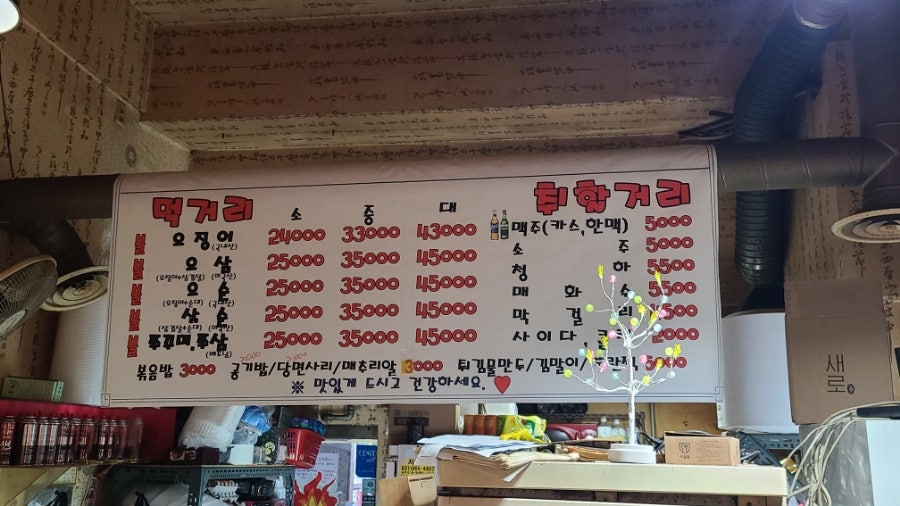 먹거리 소 중 대 취할거리
불 오징어 (국내산) 24000 33000 43000 맥주(카스,한맥) 5000
불 오삼 (오징어+삼겹살) 25000 35000 45000 소 주 5000
불 오순 (오징어+순대) (국내산) 25000 35000 45000 청 하 5500
불 삼순 (삼겹살+순대) 25000 35000 45000 매 화 수
불 쭈꾸미,쭈삼 (베트남) 25000 35000 45000 막 걸 리
사이다, 2000
볶음밥 3000 공기밥/당면사리/메추리알 3000 튀김물만두/김말이/
2000 2000
※ 맛있게 드시고 건강하세요.
새로
031)868-4462